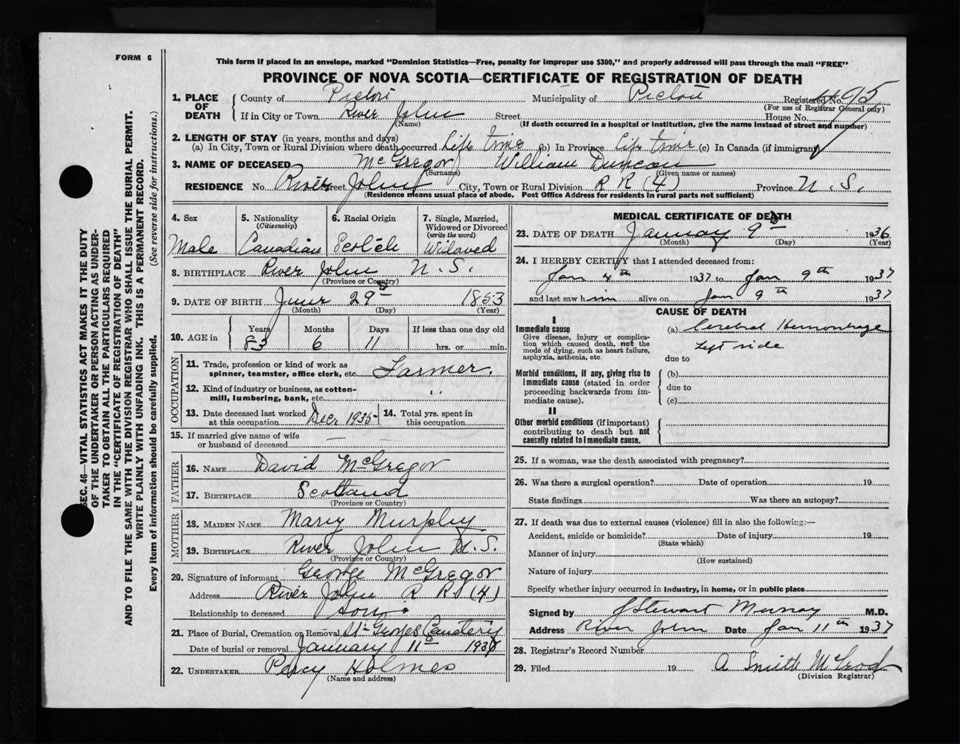 FORM 6
This form if placed in an envelope, marked "Dominion Statistics—Free, penalty for improper use $300," and properly addressed will pass through the mail "FREE"
PROVINCE OF NOVA SCOTIA—CERTIFICATE OF REGISTRATION OF DEATH
1. PLACE OF DEATH { County of Pictou Municipality of Pictou Registered No. 95
(For use of Registrar General only)
If in City or Town River John Street House No.
(Name) (If death occurred in a hospital or institution, give the name instead of street and number)
2. LENGTH OF STAY (in years, months and days)
(a) In City, Town or Rural Division where death occurred Life Time (b) In Province Life Time (c) In Canada (if immigrant)
3. NAME OF DECEASED McGregor William Duncan
(Surname) (Given name or names)
RESIDENCE No. River Street John City, Town or Rural Division R R (4) Province N. S.
(Residence means usual place of abode. Post Office Address for residents in rural parts not sufficient)
4. Sex
Male
5. Nationality
(Citizenship)
Canadian
6. Racial Origin
Scotch
7. Single, Married, Widowed or Divorced
(write the word)
Widowed
8. BIRTHPLACE River John N. S.
(Province or Country)
9. DATE OF BIRTH June 29 1853
(Month) (Day) (Year)
10. AGE in { Years Months Days If less than one day old
83 6 11 hrs. or min.
OCCUPATION
11. Trade, profession or kind of work as spinner, teamster, office clerk, etc. Farmer.
12. Kind of industry or business, as cotton-mill, lumbering, bank, etc.
13. Date deceased last worked at this occupation Decr 1935
14. Total yrs. spent in this occupation
15. If married give name of wife or husband of deceased —
FATHER
16. NAME David McGregor
17. BIRTHPLACE Scotland
(Province or Country)
MOTHER
18. MAIDEN NAME Mary Murphy
19. BIRTHPLACE River John N. S.
(Province or Country)
20. Signature of informant George McGregor
Address River John R R (4)
Relationship to deceased Son
21. Place of Burial, Cremation or Removal St Georges Cemetery
Date of burial or removal January 11 193
22. UNDERTAKER Percy Holmes
(Name and address)
MEDICAL CERTIFICATE OF DEATH
23. DATE OF DEATH January 9 1936
(Month) (Day) (Year)
24. I HEREBY CERTIFY that I attended deceased from:
Jan 4th 1937 to Jan 9th 1937
and last saw him alive on Jan 9th 1937
CAUSE OF DEATH
I
Immediate cause
Give disease, injury or complication which caused death, not the mode of dying, such as heart failure, asphyxia, asthenia, etc.
(a) Cerebral Hemorrhage
Left side
due to
Morbid conditions, if any, giving rise to immediate cause (stated in order proceeding backwards from immediate cause).
(b)
due to
(c)
II
Other morbid conditions (if important) contributing to death but not causally related to immediate cause.
25. If a woman, was the death associated with pregnancy?
26. Was there a surgical operation? Date of operation 19
State findings Was there an autopsy?
27. If death was due to external causes (violence) fill in also the following:—
Accident, suicide or homicide? Date of injury 19
(State which)
Manner of injury
(How sustained)
Nature of injury
Specify whether injury occurred in industry, in home, or in public place
Signed by J Stewart Murray M.D.
Address River John Date Jan 11th 1937
28. Registrar's Record Number
29. Filed 19 A Smith McLeod
(Division Registrar)
SEC. 46—VITAL STATISTICS ACT MAKES IT THE DUTY
OF THE UNDERTAKER OR PERSON ACTING AS UNDER-
TAKER TO OBTAIN ALL THE PARTICULARS REQUIRED
IN THE "CERTIFICATE OF REGISTRATION OF DEATH"
AND TO FILE THE SAME WITH THE DIVISION REGISTRAR WHO SHALL ISSUE THE BURIAL PERMIT.
WRITE PLAINLY WITH UNFADING INK. THIS IS A PERMANENT RECORD.
Every item of information should be carefully supplied. (See reverse side for instructions.)